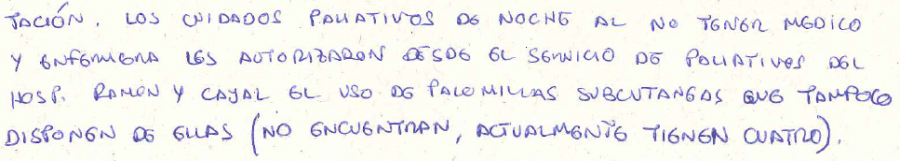 TACIÓN. LOS CUIDADOS PALIATIVOS DE NOCHE AL NO TENER MEDICO
Y ENFERMERA LES AUTORIZARON DESDE EL SERVICIO DE PALIATIVOS DEL
HOSP. RAMÓN Y CAJAL EL USO DE PALOMILLAS SUBCUTANEAS QUE TAMPOCO
DISPONEN DE ELLAS (NO ENCUENTRAN, ACTUALMENTE TIENEN CUATRO).